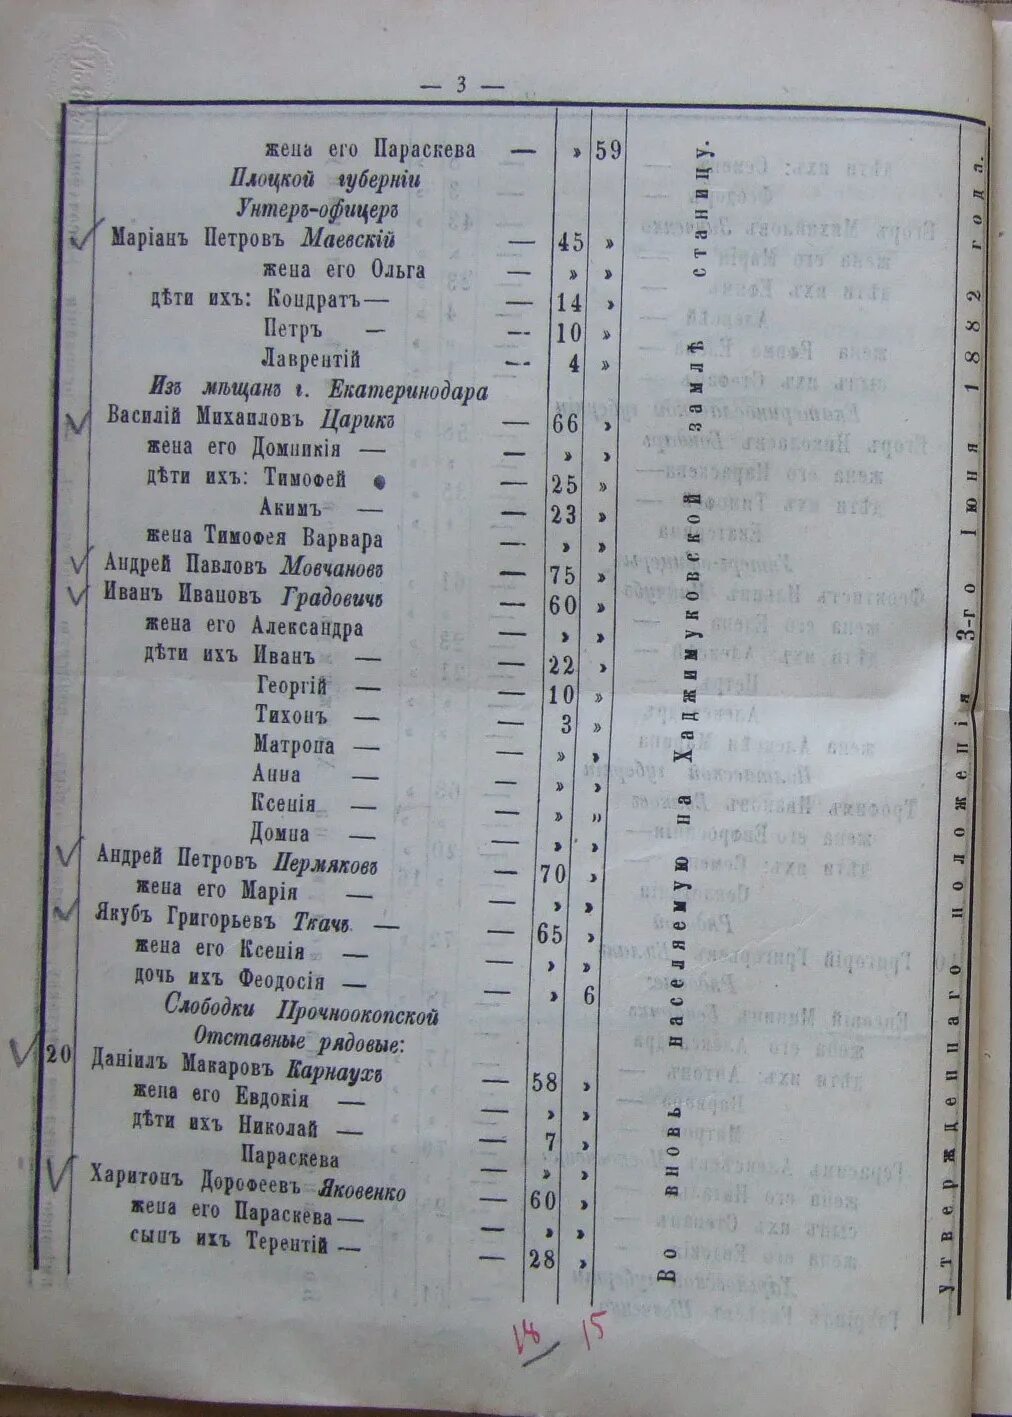 — 3 —
жена его Параскева — » 59
Плоцкой губерніи
Унтеръ-офицеръ
Маріанъ Петровъ Маевскій — 45 »
жена его Ольга — » »
дѣти ихъ: Кондратъ — — 14 »
Петръ — — 10 »
Лаврентій — 4 »
Изъ мѣщанъ г. Екатеринодара
Василій Михаиловъ Царикъ — 66 »
жена его Домникія — — » »
дѣти ихъ: Тимофей — 25 »
Акимъ — — 23 »
жена Тимофея Варвара — » »
Андрей Павловъ Мовчановъ — 75 »
Иванъ Ивановъ Градовичъ — 60 »
жена его Александра — » »
дѣти ихъ Иванъ — — 22 »
Георгій — — 10 »
Тихонъ — — 3 »
Матрона — — » »
Анна — — » »
Ксенія — — » »
Домна — — » »
Андрей Петровъ Пермяковъ — 70 »
жена его Марія — — » »
Якубъ Григорьевъ Ткачъ — — 65 »
жена его Ксенія — — » »
дочь ихъ Феодосія — — » 6
Слободки Прочноокопской
Отставные рядовые:
20 Даніилъ Макаровъ Карнаухъ — 58 »
жена его Евдокія — — » »
дѣти ихъ Николай — — 7 »
Параскева — » »
Харитонъ Дорофеевъ Яковенко — 60 »
жена его Параскева — — » »
сынъ ихъ Терентій — — 28 »
18 15
Во вновь населяемую на Хаджимуковской землѣ станицу.
утвержденнаго положенія 3-го Іюня 1882 года.